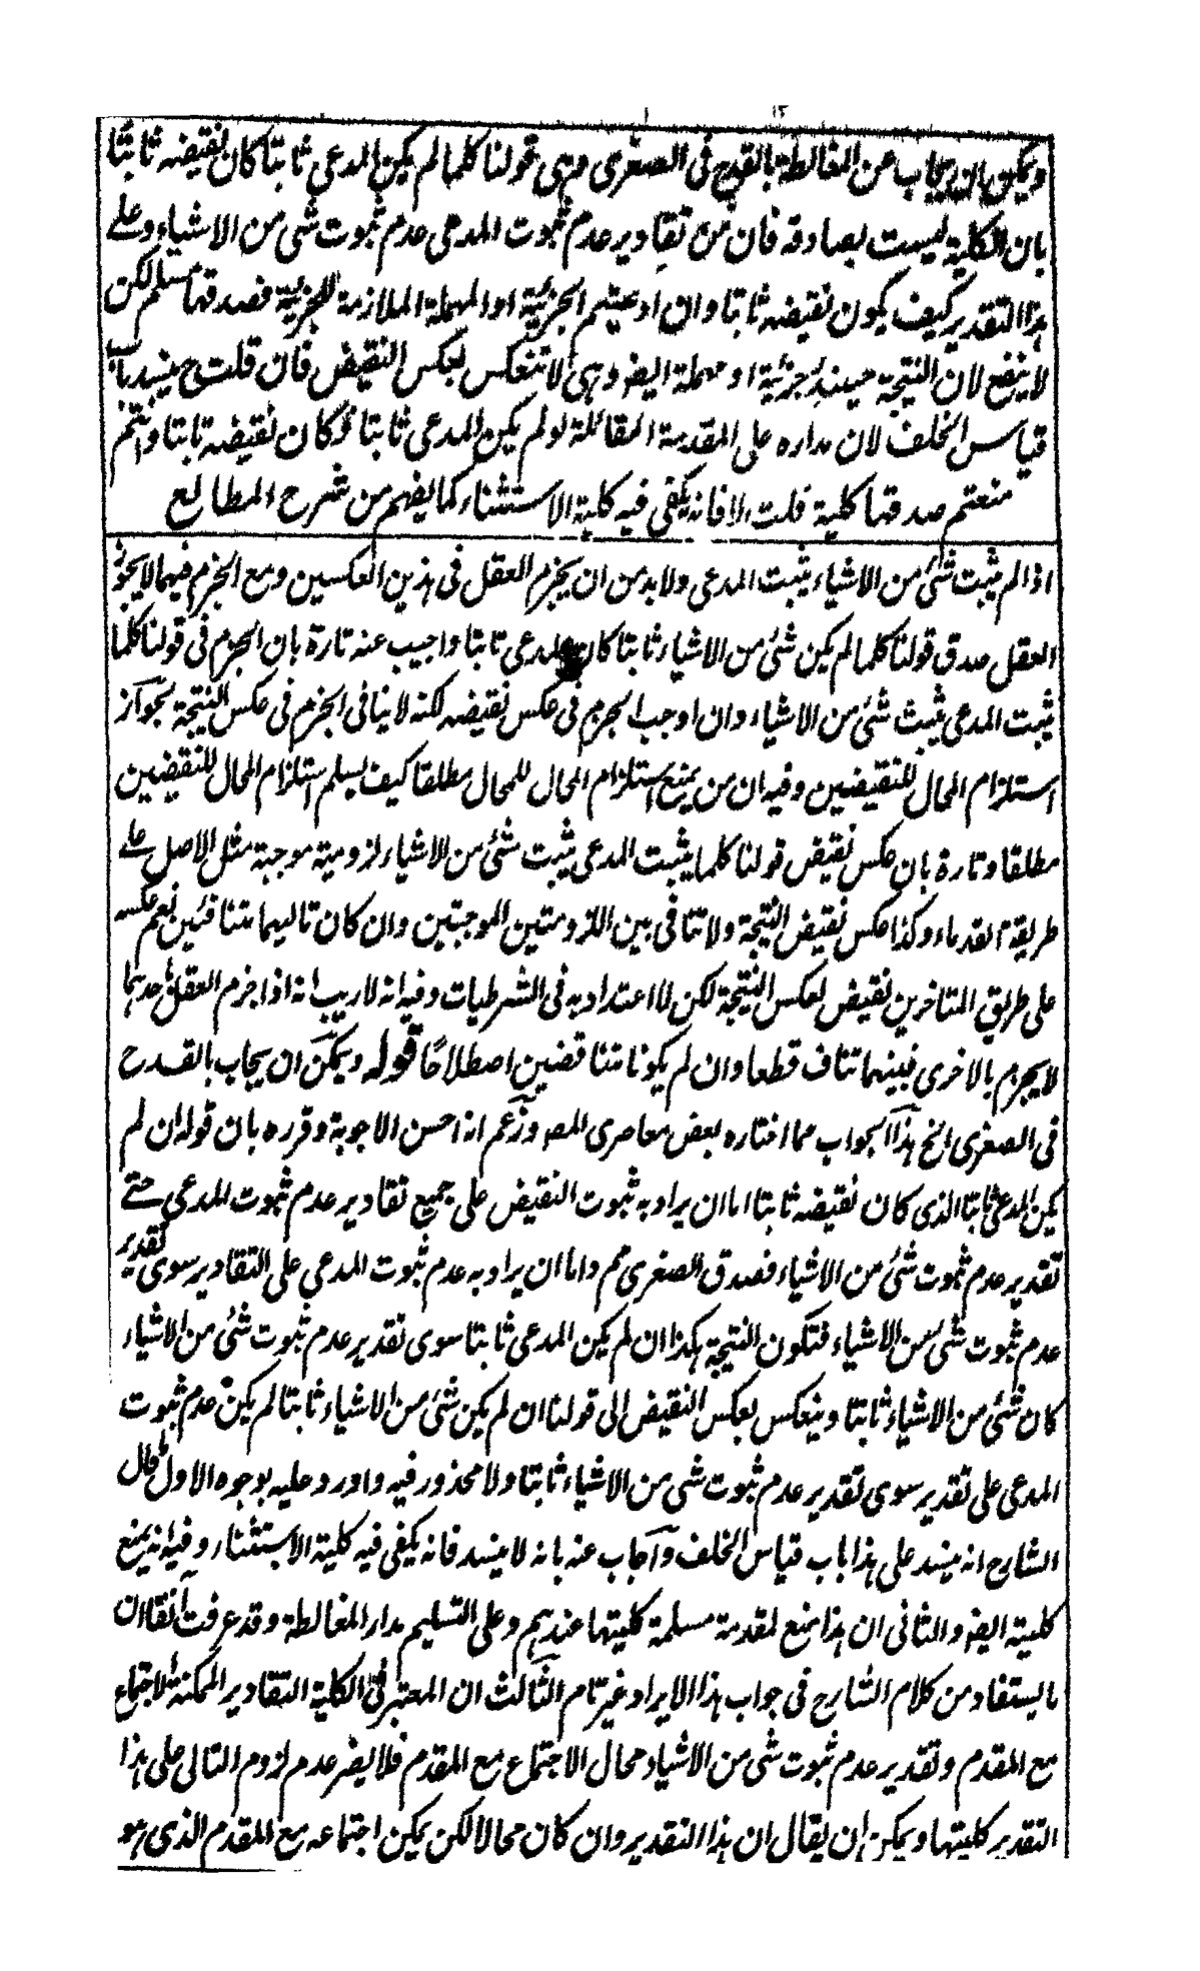 ١٣
ويمكن بان يجاب عن المغالطة بالقدح فى الصغرى وهى قولنا كلما لم يكن المدعى ثابتا كان نقيضه ثابتا
بان الكلية ليست بصادقه فان من تقادير عدم ثبوت المدعى عدم ثبوت شئ من الاشياء وعلى
هذا التقدير كيف يكون نقيضه ثابتا وان ادعيتم الجزئية او المهملة الملازمة للجزئية فصدقها مسلم لكن
لا ينفع لان النتيجة حينئذ جزئية او مهملة ايضا وهى لا تنعكس بعكس النقيض فان قلت ح ينسد باب
قياس الخلف لان مداره على المقدمة القائلة لو لم يكن المدعى ثابتا لكان نقيضه ثابتا وانتم
منعتم صدقها كلية قلت لا فانه يكفى فيه كلية الاستثناء كما يفهم من شرح المطالع
اذا لم يثبت شئ من الاشياء يثبت المدعى ولابد من ان يجزم العقل فى هذين العكسين ومع الجزم فيهما لا يجوز
العقل صدق قولنا كلما لم يكن شئ من الاشياء ثابتا كان المدعى ثابتا واجيب عنه تارة بان الجزم فى قولنا كلما
يثبت المدعى يثبت شئ من الاشياء وان اوجب الجزم فى عكس نقيضه لكنه لا ينافى الجزم فى عكس النتيجة بجواز
استلزام المحال للنقيضين وفيه ان من يمنع استلزام المحال للمحال مطلقا كيف يسلم استلزام المحال للنقيضين
مطلقا وتارة بان عكس نقيض قولنا كلما يثبت المدعى يثبت شئ من الاشياء لزومية موجبة مثل الاصل على
طريقة القدماء وكذا عكس نقيض النتيجة ولا تنافى بين اللزوميتين الموجبتين وان كان تاليهما متنافيين نعم عكسه
على طريق المتاخرين نقيض لعكس النتيجة لكن لا اعتداد به فى الشرطيات وفيه انه لا ريب انه اذا جزم العقل باحديهما
لا يجزم بالاخرى فبينهما تناف قطعا وان لم يكونا متناقضين اصطلاحًا قوله ويمكن ان يجاب بالقدح
فى الصغرى الخ هذا الجواب مما اختاره بعض معاصرى المصـ وزعم انه احسن الاجوبة وقرره بان قوله ان لم
يكن المدعى ثابتا الذى كان نقيضه ثابتا اما ان يراد به ثبوت النقيض على جميع تقادير عدم ثبوت المدعى حتى
تقدير عدم ثبوت شئ من الاشياء فصدق الصغرى مم واما ان يراد به عدم ثبوت المدعى على التقادير سوى تقدير
عدم ثبوت شئ من الاشياء فتكون النتيجة هكذا ان لم يكن المدعى ثابتا سوى تقدير عدم ثبوت شئ من الاشياء
كان شئ من الاشياء ثابتا وينعكس بعكس النقيض الى قولنا ان لم يكن شئ من الاشياء ثابتا لم يكن عدم ثبوت
المدعى على تقدير سوى تقدير عدم ثبوت شئ من الاشياء ثابتا ولا محذور فيه واورد عليه بوجوه الاول ما قال
الشارح انه ينسد على هذا باب قياس الخلف واجاب عنه بانه لا ينسد فانه يكفى فيه كلية الاستثناء وفيه انه يمنع
كليته ايضا والثانى ان هذا منع لمقدمة مسلمة كليتها عندهم وعلى التسليم مدار المغالطة وقد عرفت آنفا ان
ما يستفاد من كلام الشارح فى جواب هذا الايراد غير تام الثالث ان المعتبر فى الكلية التقادير الممكنة الاجتماع
مع المقدم وتقدير عدم ثبوت شئ من الاشياء محال الاجتماع مع المقدم فلا يضر عدم لزوم التالى على هذا
التقدير كليتها ويمكن ان يقال ان هذا التقدير وان كان محالا لكن يمكن اجتماعه مع المقدم الذى هو